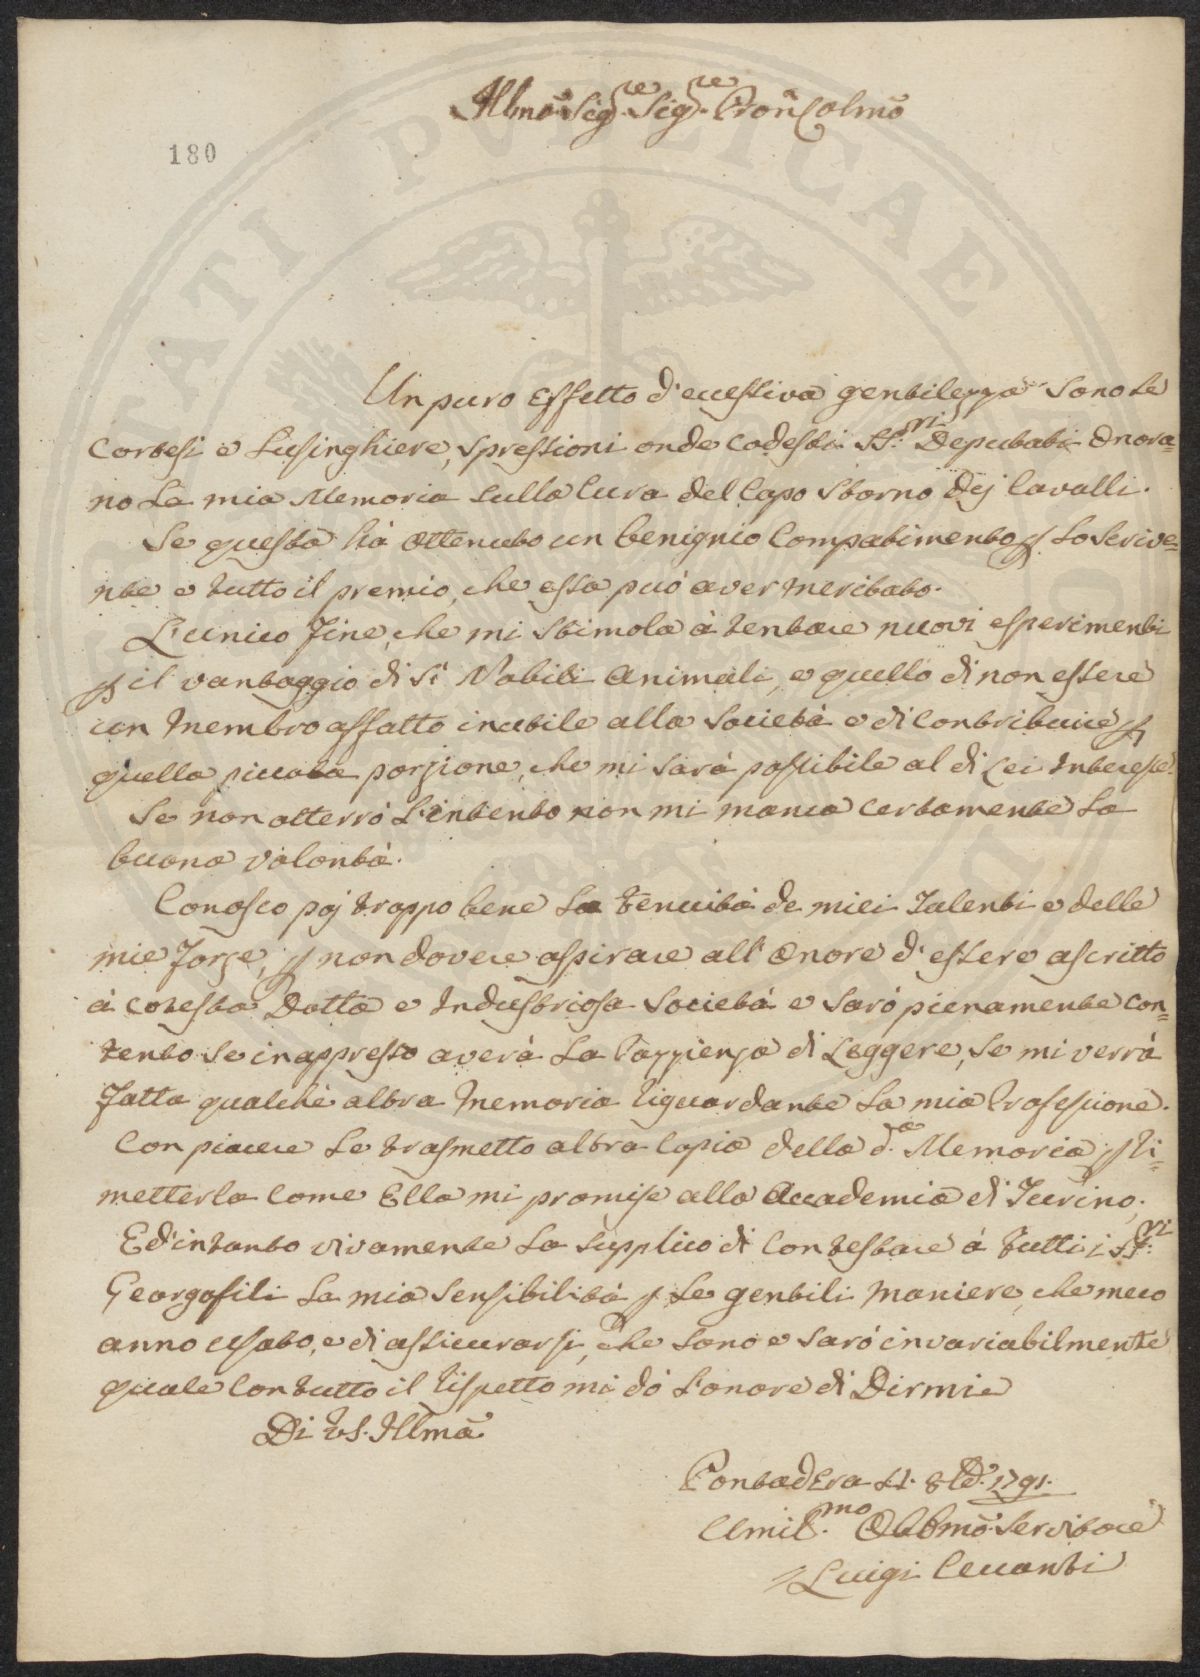 Illmo Sig.re Sig.re Pron Colmo
180
Un puro Effetto d'ecessiva gentilezza sono le
Cortesi e Lusinghiere, spressioni onde codesti SS.ri Deputati Onora=
no La mia Memoria sulla Cura del Capo Storno dej Cavalli.
Se questa hà ottenuto un benignio Compatimento p Lo Scrive=
nte e tutto il premio, che essa può aver meritato.
L'unico fine, che mi stimola à tentare nuovi esperimenti
p il vantaggio di sì Nobili Animali, e quello di non essere
un Membro affatto inutile alla Società e di Contribuire p
quella piccola porzione, che mi sarà possibile al di Lei Interesse.
Se non otterrò L'intento non mi manca certamente La
buona volontà.
Conosco poj troppo bene La tenuità de miei Talenti e delle
mie forze, p non dovere aspirare all'Onore d'essere ascritto
à cotesta Dotta e Industriosa Società e sarò pienamente con=
tento se inappresso averà La Pazzienza di Leggere, se mi verrà
fatta qualche altra Memoria riguardante La mia Professione.
Con piacere Le trasmetto altra Copia della d.a Memoria p ri=
metterla Come Ella mi promise alla Accademia di Turino,
Ed'intanto vivamente La supplico di Contestare à tutti i SS.ri
Georgofili La mia sensibilità p Le gentili Maniere, che meco
anno usato, e di assicurarsi, che sono e sarò invariabilmente
quale Con tutto il rispetto mi dò L'onore di Dirmi
Di VS. Illma
Pontadera 21. 8bd. 1791.
Umil.mo Obbmo Servitore
Luigi Ceuanti
ATI PVBLICAE